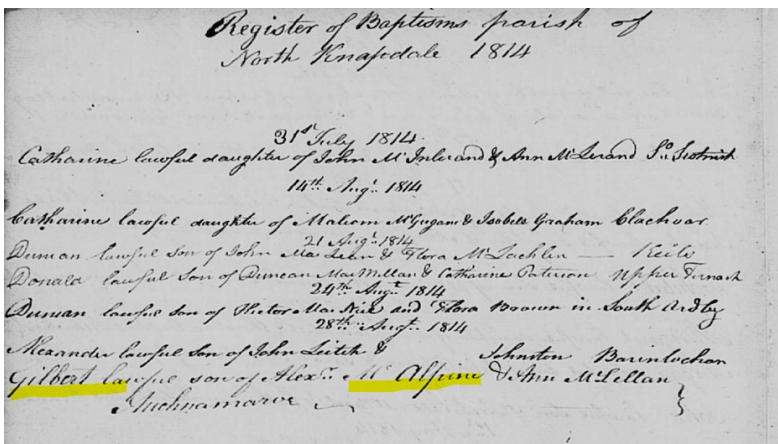 Register of Baptisms parish of
North Knapdale 1814
31st July 1814
Catharine lawful daughter of John & Ann
14th Augt. 1814
Catharine lawful daughter of Malcom McGugan & Isobela Graham Clachvar
21 Augt. 1814
Duncan lawful son of John MacLean & Flora McLachlin — Keils
Donald lawful Son of Duncan MacMillan & Catharine Paterson upper
24th Augt. 1814
Duncan lawful son of Hector MacNeil and Flora Brown in South Ardby
28th Augt. 1814
Alexander lawful son of John Leitch & Johnston Barinlochan
Gilbert lawful son of Alexr. Mc Alpine & Ann McLellan
Auchnamarve